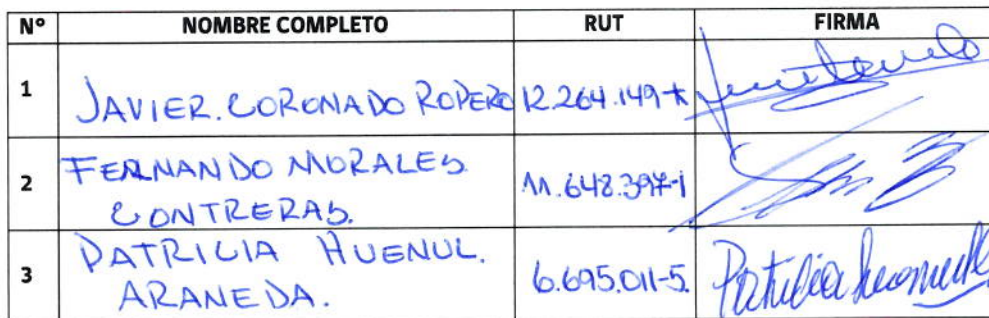 N° NOMBRE COMPLETO RUT FIRMA
1 JAVIER. CORONADO ROPERO 12.264.149-K
2 FERNANDO MORALES
CONTRERAS. 11.648.397-1
3 PATRICIA HUENUL.
ARANEDA. 6.695.011-5.
Patricia